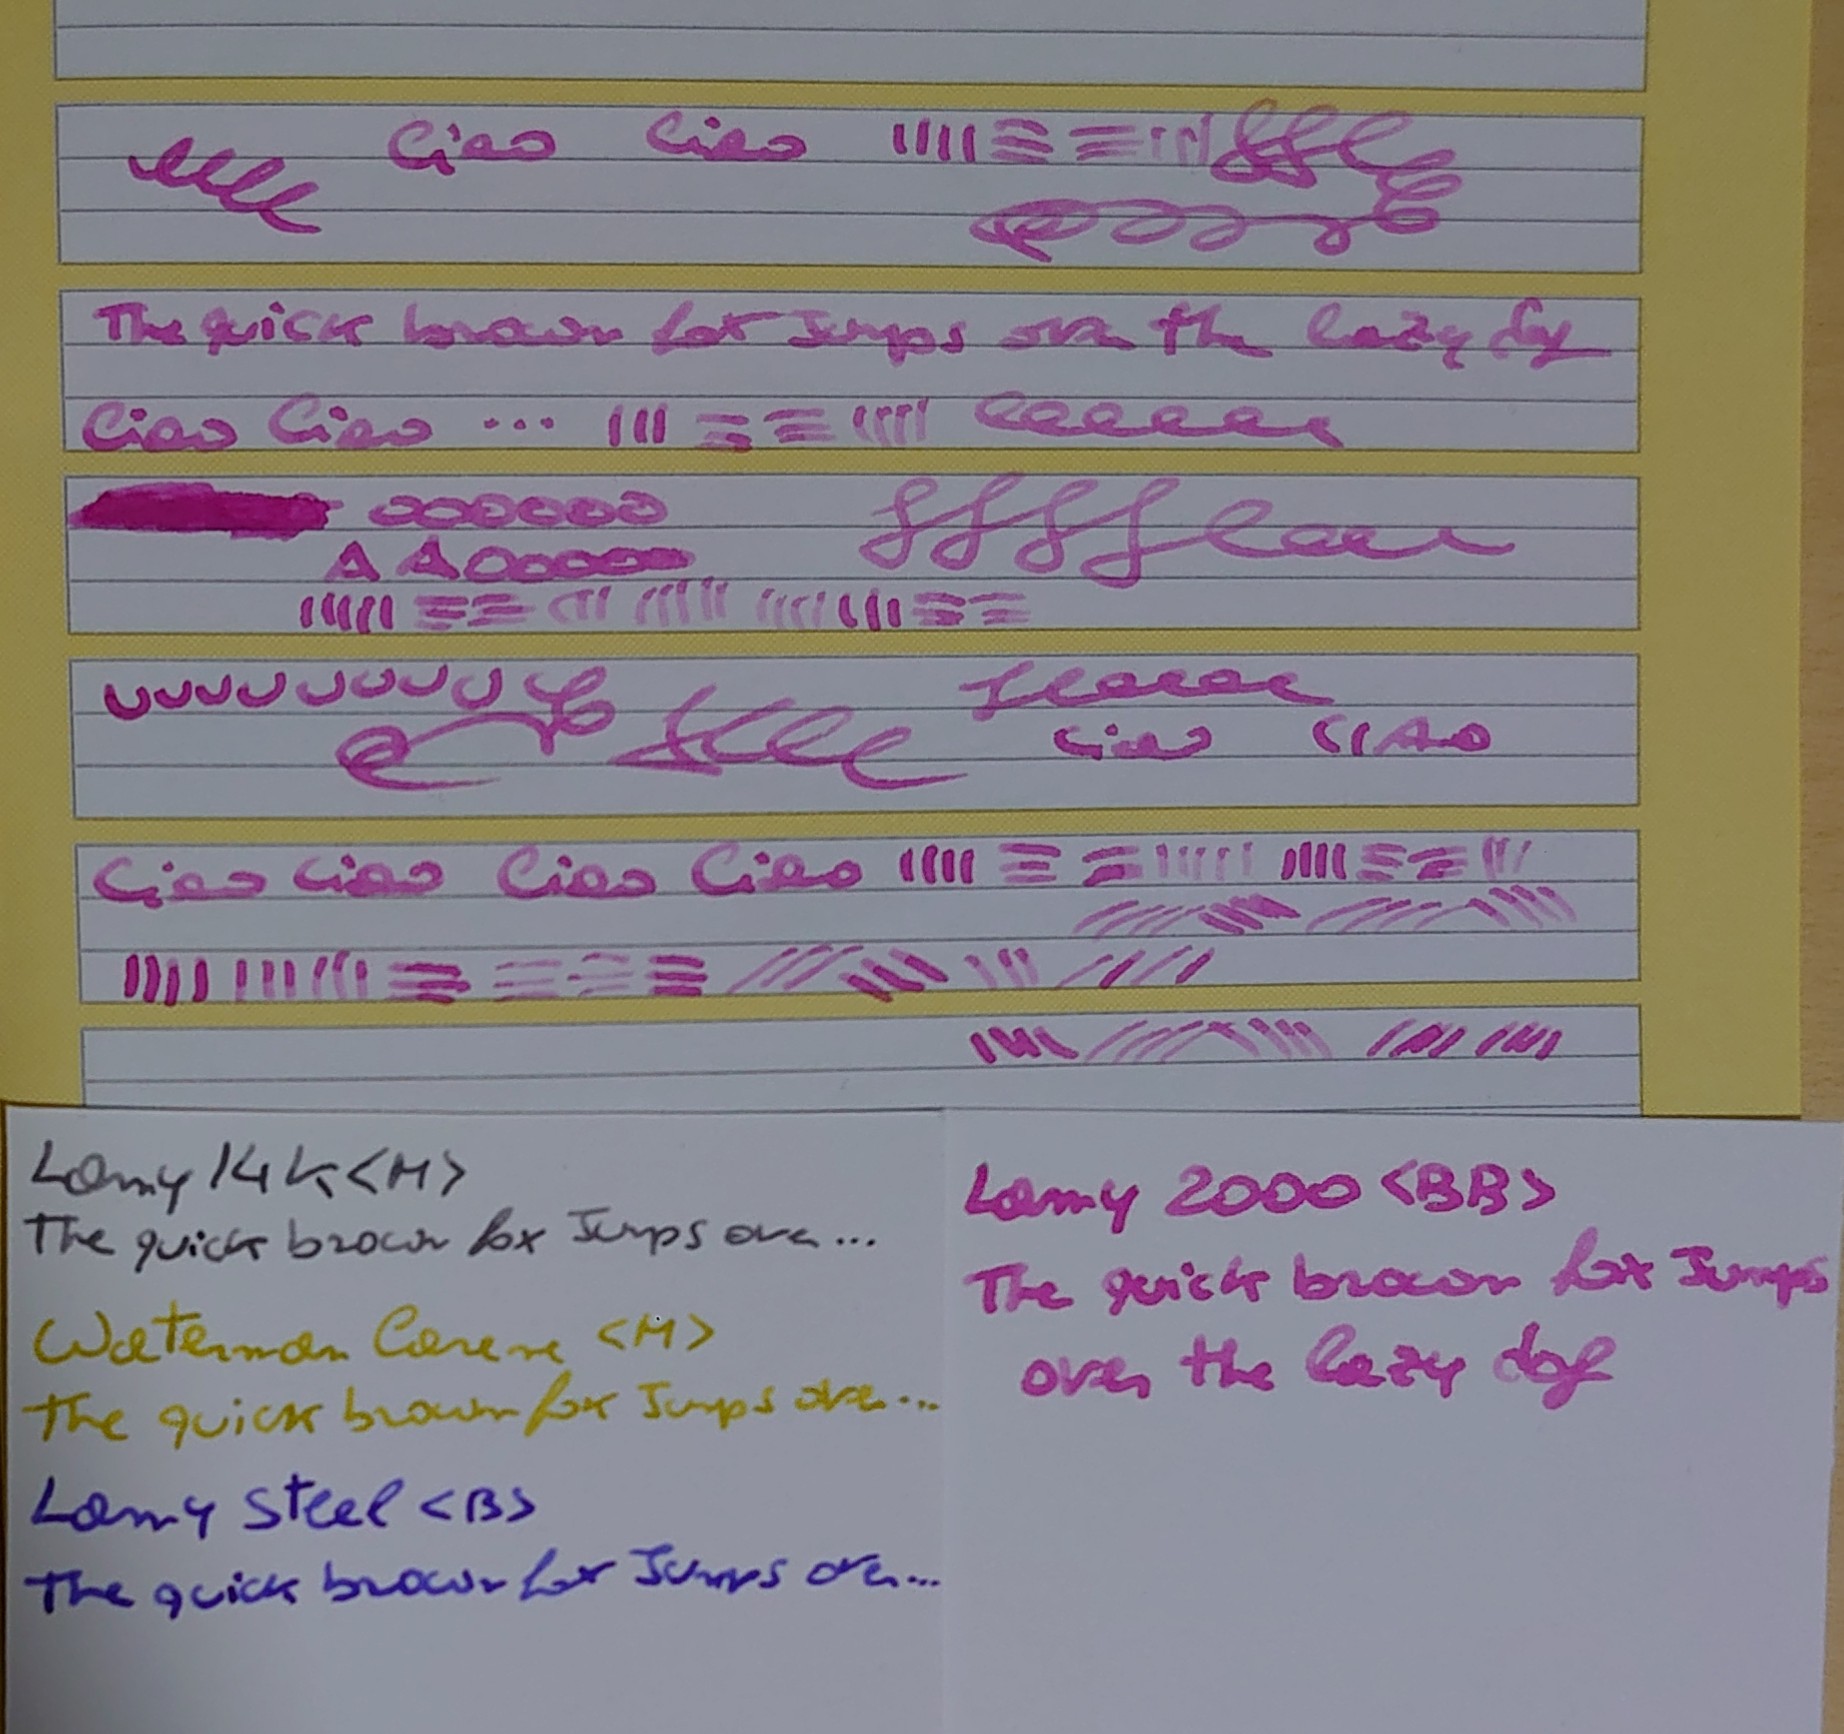 Ciao Ciao
The quick brown fox Jumps over the lazy dog
Ciao Ciao ...
oooooo
A A ooooo
Ciao CIAO
Ciao Ciao Ciao Ciao
Lamy 14k <M>
The quick brown fox Jumps over...
Waterman Carene <M>
The quick brown fox Jumps over...
Lamy Steel <B>
The quick brown fox Jumps over...
Lamy 2000 <BB>
The quick brown fox Jumps
over the lazy dog